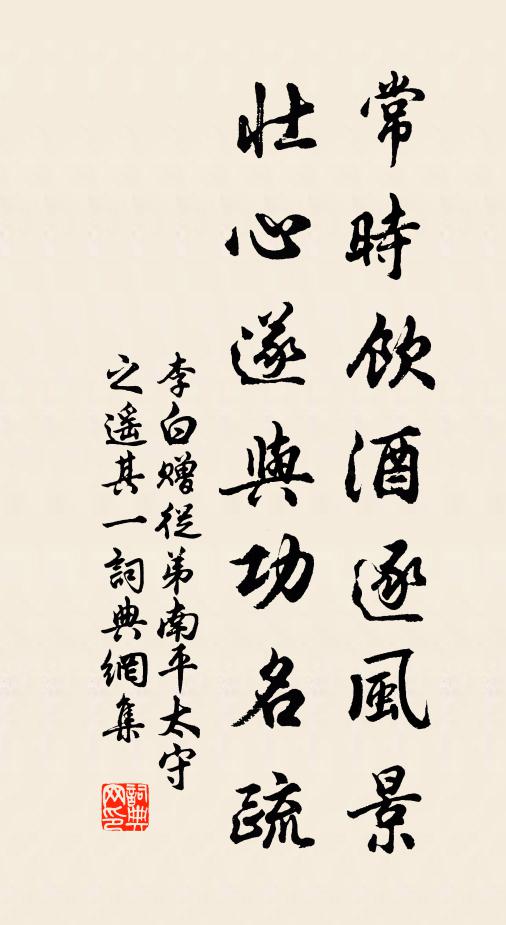 常時飲酒逐風景
壯心遂與功名疏
李白贈從弟南平太守
之遥其一詞典網集
詞典
网印